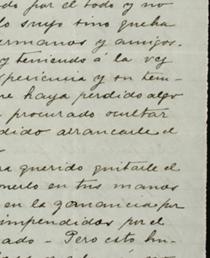 do por el todo y no
lo suyo sino que ha
ermanos y amigos.
y teniendo á la vez
periencia y su tem-
re haya perdido algo
procurado ocultar
dido arrancarle el
a querido quitarle el
onerlo en tus manos
en la ganancia por
impendidos por el
ado - Pero esto hu-